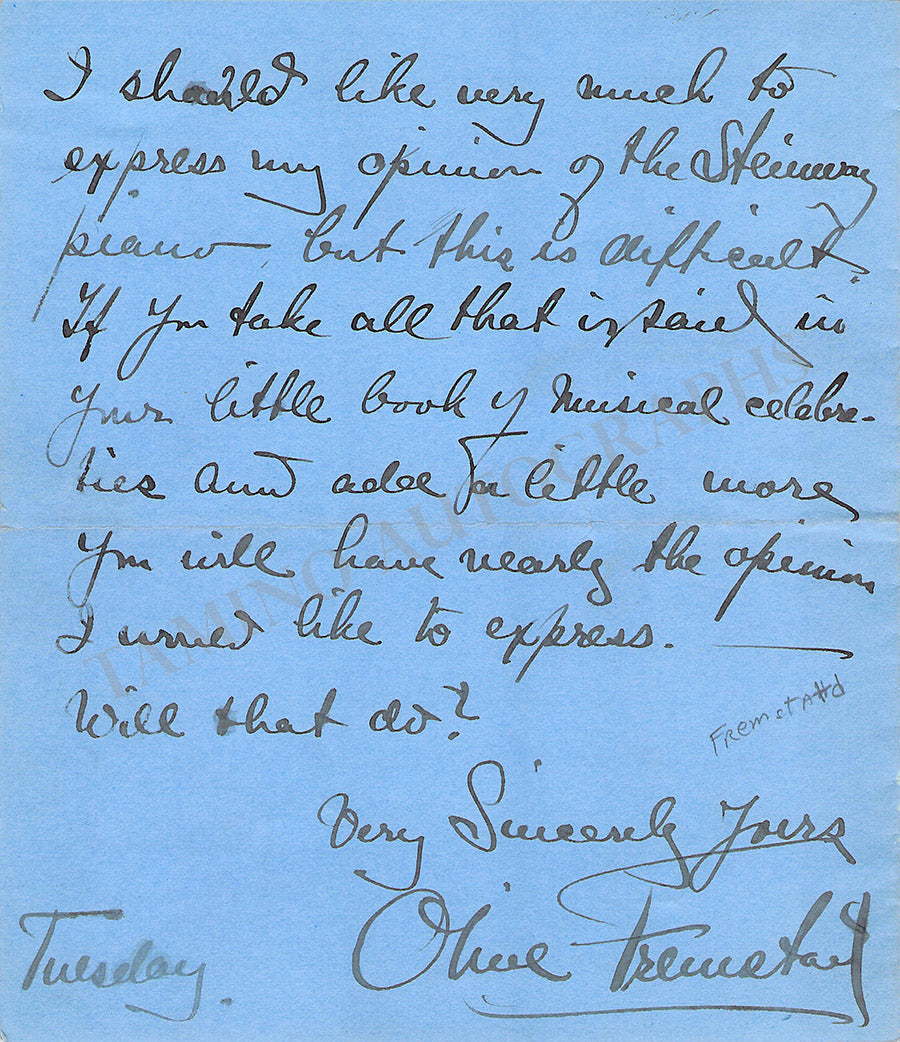 I should like very much to
express my opinion of the Steinway
piano – but this is difficult.
If you take all that is said in
your little book of Musical celebre-
ties and add a little more
you will have nearly the opinion
I would like to express. —
Will that do?
Fremstad
Very Sincerely Yours
Olive Fremstad
Tuesday.
TAMINO AUTOGRAPHS